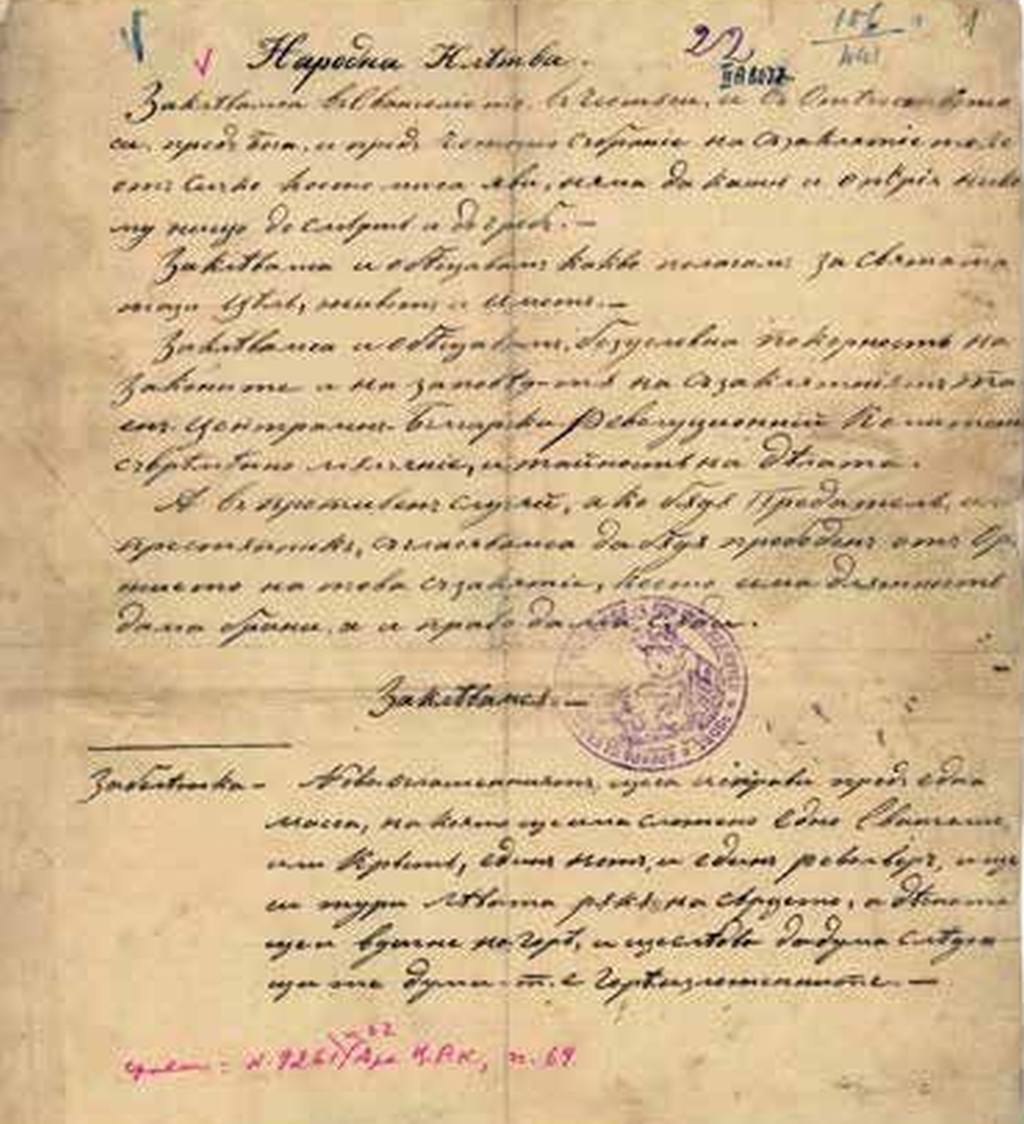 Народна Клѣтва.
22
II A 8077
Заклѣвамса въ Евангелието, въ честьта, и въ Отечеството
си, предъ Бога, и предъ честното събрание на съзаклятието,
отъ сичко което миса яви, нѣма да кажѫ и откриѭ нико
му нищо до смърть и въ гробъ. —
Заклѣвамса и обѣщавамъ какво полагамъ за святата
тази цѣль, животъ и имотъ. —
Заклѣвамса и обѣщавамъ, безусловна покорность на
Законите и на заповѣдите на съзаклятниятъ Та
енъ Централенъ Български Революционний Комитетъ
съврѣмѣнно мълчание, и тайность на дѣлата.
А въ противенъ случай, ако бѫдѫ Предатель, и
престѫпникъ, съгласявамса да бѫдѫ прободенъ отъ Орѫ
жието на това съзаклятие, което има длъжность
дама брани, а и право дама сѫди.
Заклѣвамса. —
Забѣлѣшка — Новосъгласенниятъ, щеса исправи предъ една
масса, на която щеима сложено едно Евангелие,
или Кръстъ, единъ ножъ, и единъ револверъ, и ще
си тури лѣвата рѫка на сърцето, а дѣсната
ще я вдигне нагорѣ, и щеслѣдва дадума слѣдую
щите думи — т. е. горѣизложенните. —
№ 9261 Арх Ц.Р.К., п. 69.